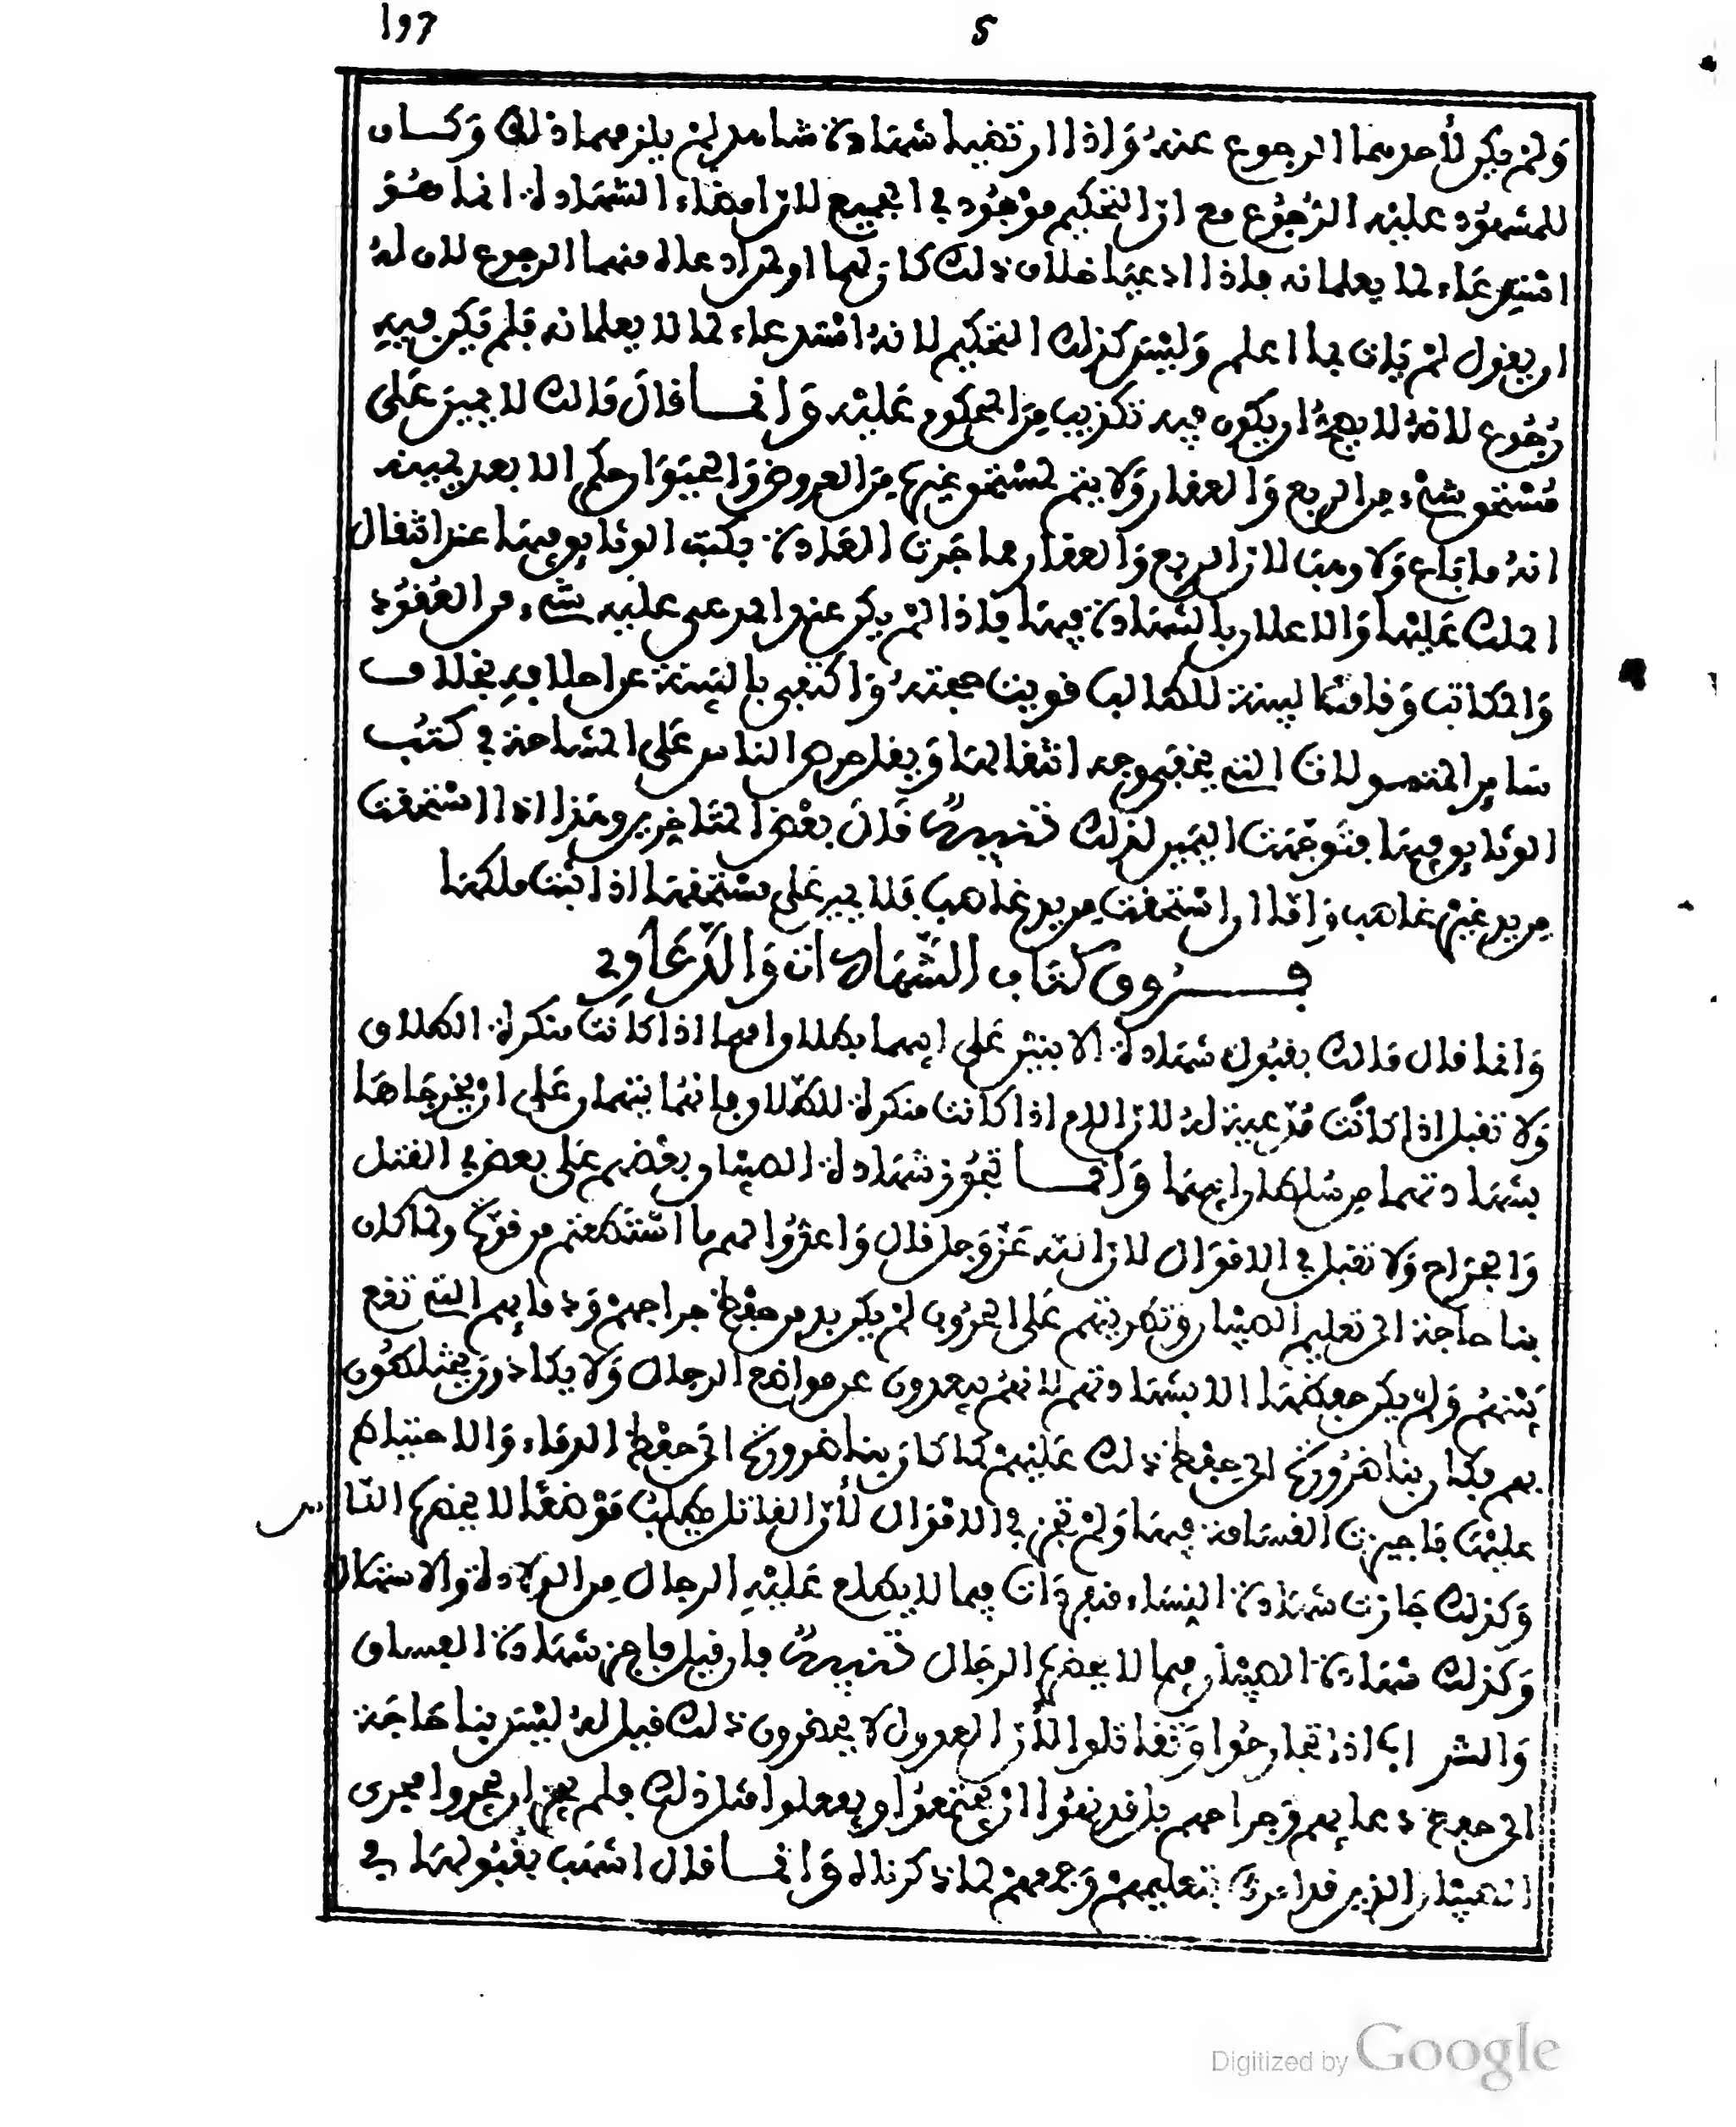 197 5
وَلمْ يكن لأحدهما الرجوع عنهُ وَاذا ارتضيا شهادة شاهد لمْ يلزمهما ذلك وَكان
للمشهوُد عليْه الرُجُوُع مع انّ التحكيم موْجُوُد في الجميع لانّ امضاء الشهادة انما هُوَ
اسْتِدعَاء لما يعلمانه فاذا ادعيا خلاف ذلك كان لهما اولمن اد عاه منهما الرجوع لان لهُ
ان يفول لمْ يَات بما اعلم وَليْسَ كذلك التحكيم لانهُ اسْتدعاء لما لا يعلمانه فلم يكن فيهِ
رُجُوع لانهُ لا يصحُّ ان يكون فيه تكذيب مِنَ المحكوم عَليْه وَانما فالَ مَالك لا يمين عَلى
مُسْتحق شيْء مِن الربع وَالعفار وَلا يتم لمسْتحق غيرها مِنَ العروض وَالحيَوَان حكم الا بعد يمينه
انهُ ما بَاع وَلا وهبَ لان الربع وَالعفار مما جَرت العَادة بكتب الوثايق فيهَا عند انتفال
املك عَليْهَا وَالاعلان بالشهَادة فيهَا فاذا لمْ يكن عند المدعى عليه شيْء من العُفوُد
وَالمكاتب وَفامت البينة للطالب فويت حجتهُ وَاكتفى بالبَينة عن احلافهِ بخلاف
سَاير المتمولات التي يخفى وجه انتفالهَا وَيفل حرص الناس عَلى المشاحة في كتْب
الوثايق فيهَا فتوَجّهت اليَمين لذلك تنبيه فَالَ بعْض المتاخرين وهَذا اذا اسْتحفت
مِن يد غيْر غاصب وَامّا ان اسْتحفت مِن يد غاصب فلا يمين عَلى مسْتحفهَا اذا ثبتَ ملكهَا
فرُوق كتَاب الشّهَادات وَالدّعَاوي
وَانما فال مَالك بفبُول شهَادة الابنيْن عَلى ابيهما بطلاق امهما اذا كانت منكرة الطلاق
وَلا تفبل اذا كانَت مُدّعية لهُ لانّ الام اذا كانت منكرة للطّلاق فانهُما يتهمان عَلى انْ يخرجَاها
بشهَادتهما مِن سُلطان ابيهمَا وَانما تجُوز شهَادة الصبْيان بعْضهم عَلى بعض في الفتل
وَالجرَاح وَلا تفبل في الافوَال لانّ الله عَزّ وَجل فال وَاعدّوُا لهم ما اسْتطعتم من فوّة ولما كان
بنا حاجة الى تعليم الصبْيان وَتطريتهم عَلى الحرُوب لمْ يكن بد من حفْظ جراحهمْ وَدمايهم التي تفع
بَيْنهُم وَلمْ يكن حفظهَا الا بشهَادتهم لانهُم يبعدون عن مواضع الرجال وَلا يكادون يختلطون
بهم فكان بنا ضرُورة الى حِفْظ ذلك عَليْهمْ كما كان بنا ضرورة الى حفْظ الدماء وَالاحتياط
عليْهَا فاجيزت الفسَامة فيهَا وَلمْ تجز في الافوَال لأنّ الفاتل يطلب مَوْضعًا لا يحضرهُ النّاس
وَكذلك جَازت شهَادة النِسَاء منفردَات فيما لا يطلع عَليْهِ الرجال مِن الولادة والاستهلال
وَكذلك شهادة الصبْيان فيما لا يحضرهُ الرجَال تنبيه فان فيل فاجز شهَادة الفساق
وَالشر اب اذا تجارحُوا وَتفاتلوا لأنّ العدول لا يحضرون ذلك فيل لهُ ليْسَ بنا حَاجَة
الى حفظ دمايهم وَجراحهم بل فد نهُوا انْ يجتمعُوا ويفعلوا مثل ذلك فلم يجز ان يجروا مجرى
الصبْيان الذين فد امرنا بتعليمهمْ وَجمعهمْ لما ذكرناه وَانما فال اشهَب بفبُولهَا في